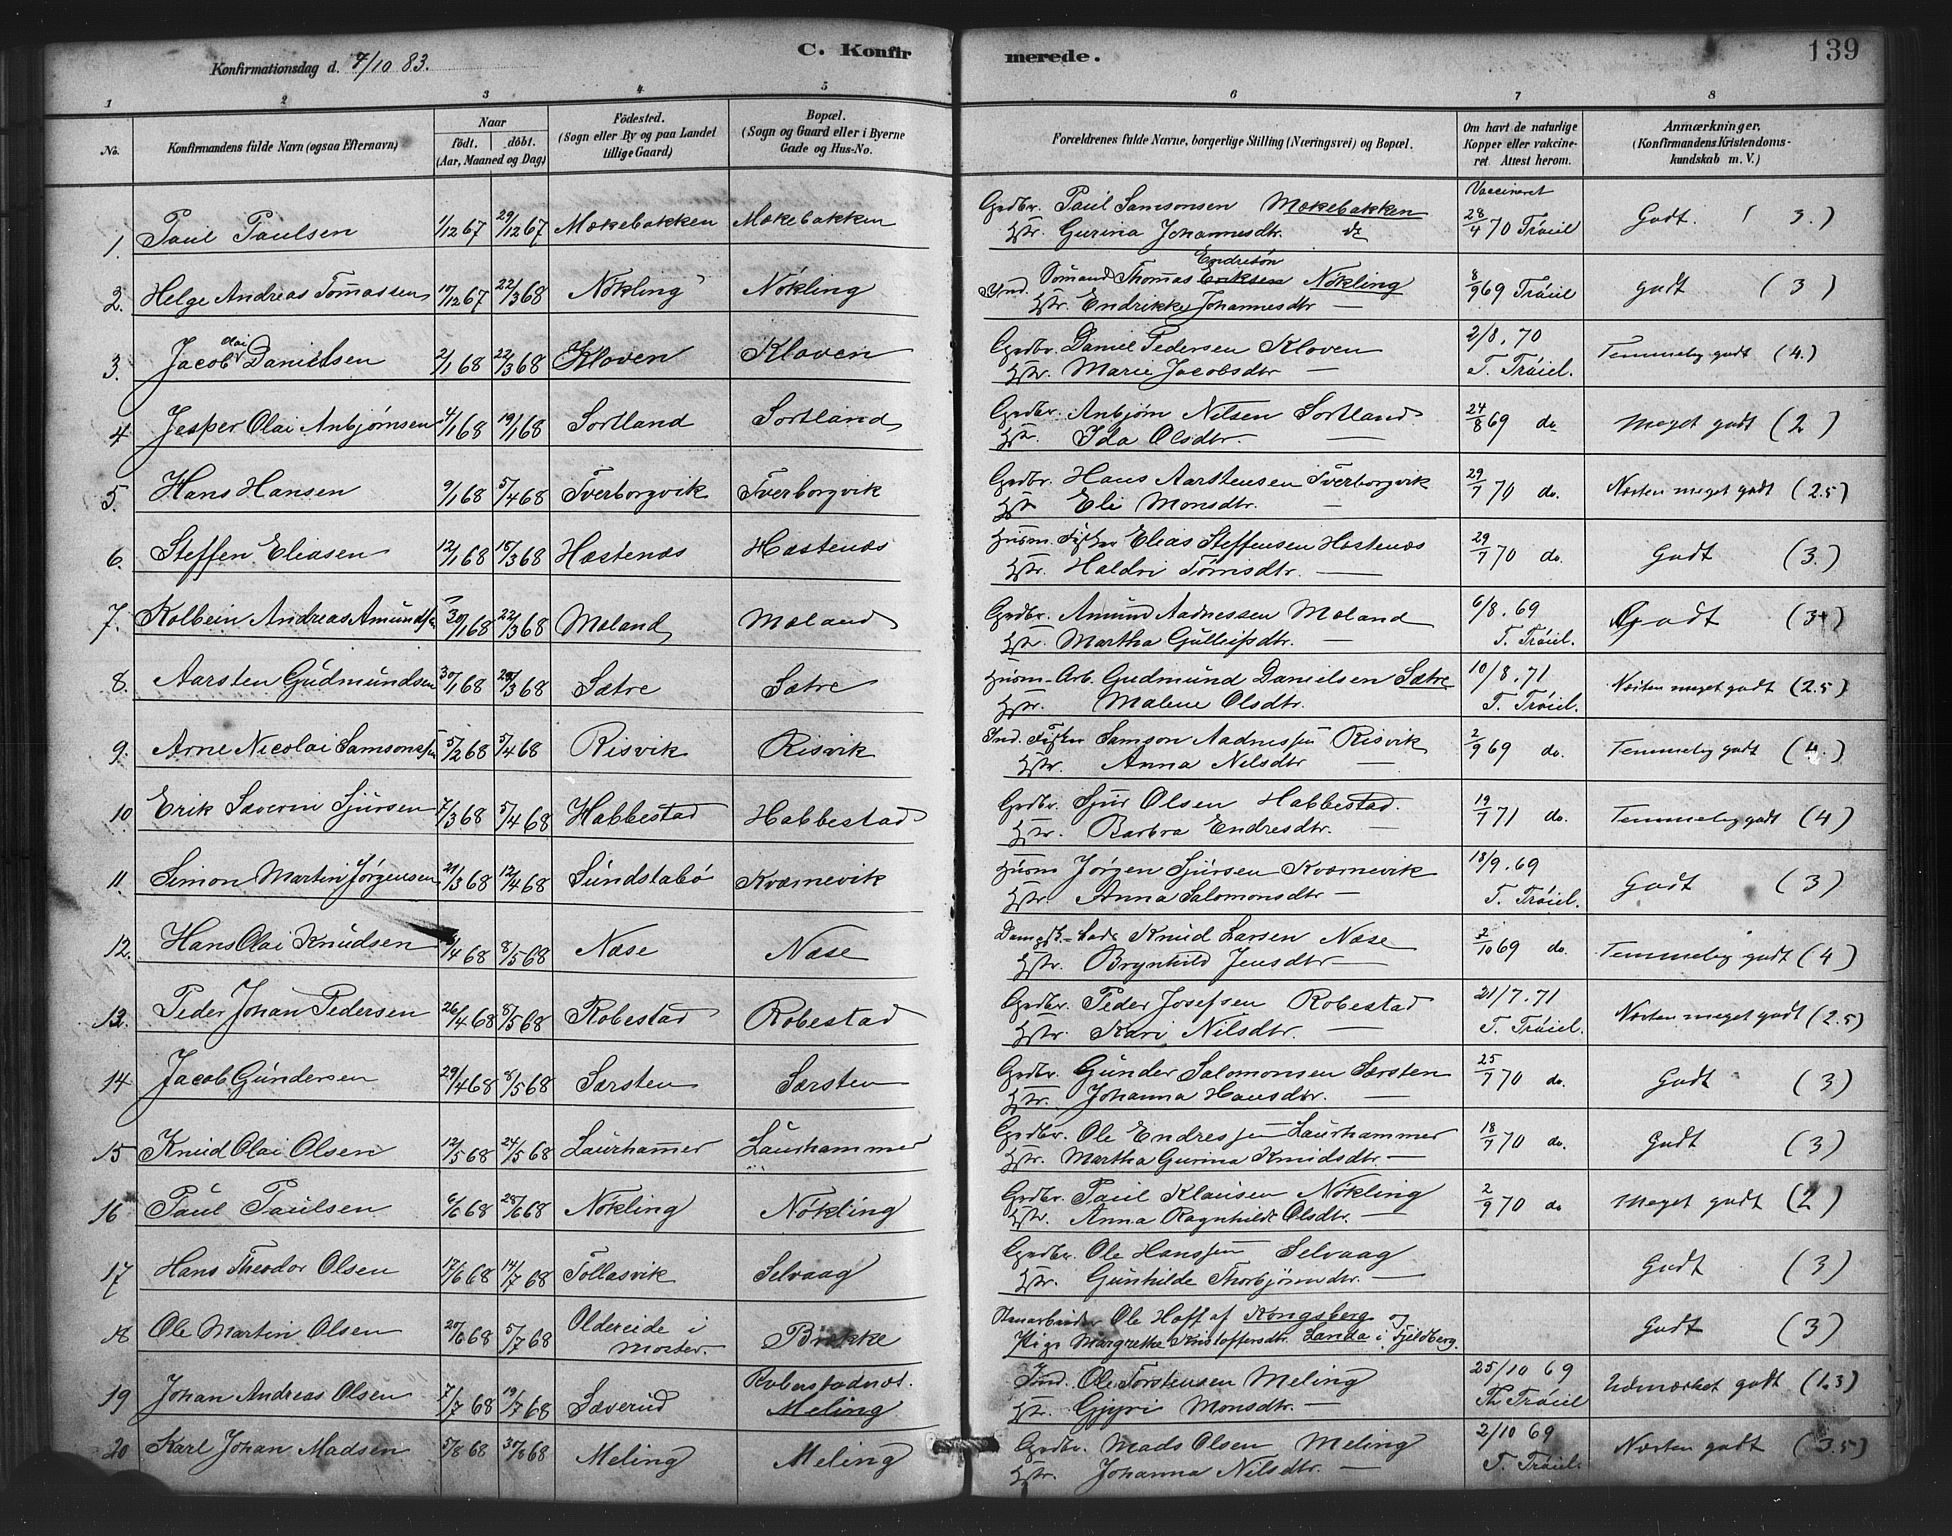 C. Konfirmerede. 139
Konfirmationsdag d. 7/10 83.
1 2 3 4 5 6 7 8
No. Konfirmandens fulde Navn (ogsaa Efternavn) Naar födt. döbt. (Aar, Maaned og Dag) Födested. (Sogn eller By og paa Landet tillige Gaard) Bopæl. (Sogn og Gaard eller i Byerne Gade og Hus-No. Forældrenes fulde Navne, borgerlige Stilling (Næringsvei) og Bopæl. Om havt de naturlige Kopper eller vakcineret. Attest herom. Anmærkninger, (Konfirmandens Kristendomskundskab m. V.)
1. Paul Paulsen 1/12 67 29/12 67 Mækebakken Mækebakken Grdbr. Paul Samsonsen Mækebakken Vaccineret 28/4 70 Trøiel Godt. (3.)
Hstr. Gurina Johannesdtr. do
2. Helge Andreas Tomassen 17/12 67 22/3 68 Nökling Nökling Ind. Sömand Thomas Eriksen Endresön Nökling 8/9 69 Trøiel godt (3)
Hstr. Endrikke Johannesdtr —
3. Jacob Olai Danielsen 2/1 68 22/3 68 Kloven Kloven Grdbr. Daniel Pedersen Kloven 2/8. 70 T. Trøiel. Temmelig godt (4.)
Hstr. Marie Jacobsdtr —
4 Jesper Olai Anbjørnsen 4/1 68 19/1 68 Sortland Sortland Grdbr. Anbjørn Nilsen Sortland 24/8 69 do Meget godt (2)
Hstr. Ida Olsdtr. —
5. Hans Hansen 9/1 68 5/4 68 Tverborgvik Tverborgvik Grdbr. Hans Aarstensen Tverborgvik 29/7 70 do. Næsten meget godt (2.5)
Hstr Eli Monsdtr. —
6. Steffen Eliasen 12/1 68 15/3 68 Hæstenæs Hæstenæs Husm. Fisker Elias Steffensen Hæstenæs 29/7 70 do. Godt (3.)
Hstr. Haldri Tømsdtr. —
7. Kolbein Andreas Amundsen 30/1 68 22/3 68 Mæland Mæland Grdbr. Amund Aadnessen Mæland 6/8. 69 T. Trøiel. Godt (3)
Hstr. Martha Gulleifsdtr. —
8. Aarsten Gudmundsen 30/1 68 /3 68 Sætre Sætre Husm. Arb. Gudmund Danielsen Sætre 10/8. 71 T. Trøiel. Næsten meget godt (2.5)
Hstr. Malene Olsdtr.
9. Arne Nicolai Samsonssen 5/2 68 5/4 68 Risvik Risvik Ind. Fisker Samson Aadnessen Risvik 2/9 69 do. Temmelig godt (4.)
Hstr. Anna Nilsdtr —
10 Erik Severin Sjursen 7/3 68 5/4 68 Habbestad Habbestad Grdbr. Sjur Olsen Habbestad. 19/7 71 do. Temmelig godt (4)
Hstr. Barbra Endresdtr. —
11. Simon Martin Jørgensen 21/3 68 12/4 68 Sundstabö Kværnevik Husm Jørgen Sjursen Kværnevik 18/9. 69 T. Trøiel. Godt (3)
Hstr. Anna Salomonsdtr —
12. Hans Olai Knudsen /4 68 8/5 68 Næse Næse Knud Larsen Næse 2/10 69 do. Temmelig godt (4)
Hstr. Brynhild Jensdtr —
13. Peder Johan Pedersen 26/4 68 8/5 68 Robestad Robestad Grdbr. Peder Josefsen Robestad 21/7. 71 T. Trøiel. Næsten meget godt (2.5)
Hstr. Kari Nilsdtr. —
14 Jacob Gundersen 29/4 68 8/5 68 Særsten Særsten Grdbr. Gunder Salomonsen Særsten 25/7 70 do. Godt (3)
Hstr. Johanna Hansdtr. —
15 Knud Olai Olsen 12/5 68 24/5 68 Laurhamer Laurhammer Grdbr. Ole Endressen Laurhammer 18/7 70 do. Godt (3)
Hstr. Martha Gurina Knudsdtr —
16 Paul Paulsen 6/6 68 28/6 68 Nökling Nökling Grdbr. Paul Klausen Nökling 2/9 70 do Meget godt (2)
Hstr. Anna Ragnhilde Olsdtr. —
17 Hans Theodor Olsen 17/6 68 14/7 68 Tollasvik Selvaag Grdbr. Ole Hanssen Selvaag Godt (3)
Hstr. Gunhilde Thorbjörnsdtr. —
18 Ole Martin Olsen 20/6 68 5/7 68 Oldereide i Moster. Brække Ole Hoff af Kongsberg og Godt (3)
Pige Margrethe Kristoffersdtr. Landa i Fjeldberg.
19 Johan Andreas Olsen 7/7 68 19/7 68 Sæverud Meling Ind. Ole Torstensen Meling 25/10 69 Th Trøiel Udmærket godt (1.3)
Hstr. Gjyri Monsdtr. —
20 Karl Johan Madsen 3/8 68 30/8 68 Meling Meling Grdbr. Mads Olsen Meling 2/10 69 T. Trøiel. Næsten godt (3.5)
Hstr. Johanna Nilsdtr. —